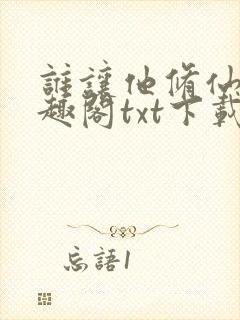 誰讓他脩仙
趣閣txt下載
忘語1